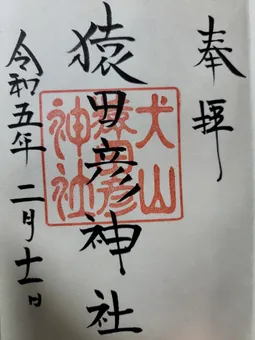 奉拝
猿田彦神社
犬山
猿田彦
神社
令和五年二月十一日